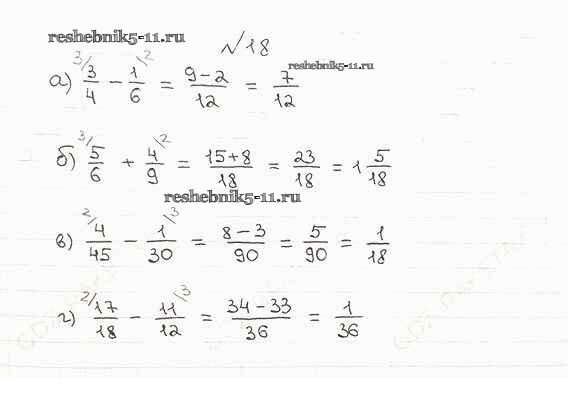 reshebnik5-11.ru
№18
reshebnik5-11.ru
а) 3/ 3/4 − 1/6 \2 = (9−2)/12 = 7/12
б) 3/ 5/6 + 4/9 \2 = (15+8)/18 = 23/18 = 1 5/18
reshebnik5-11.ru
в) 2/ 4/45 − 1/30 \3 = (8−3)/90 = 5/90 = 1/18
г) 2/ 17/18 − 11/12 \3 = (34−33)/36 = 1/36